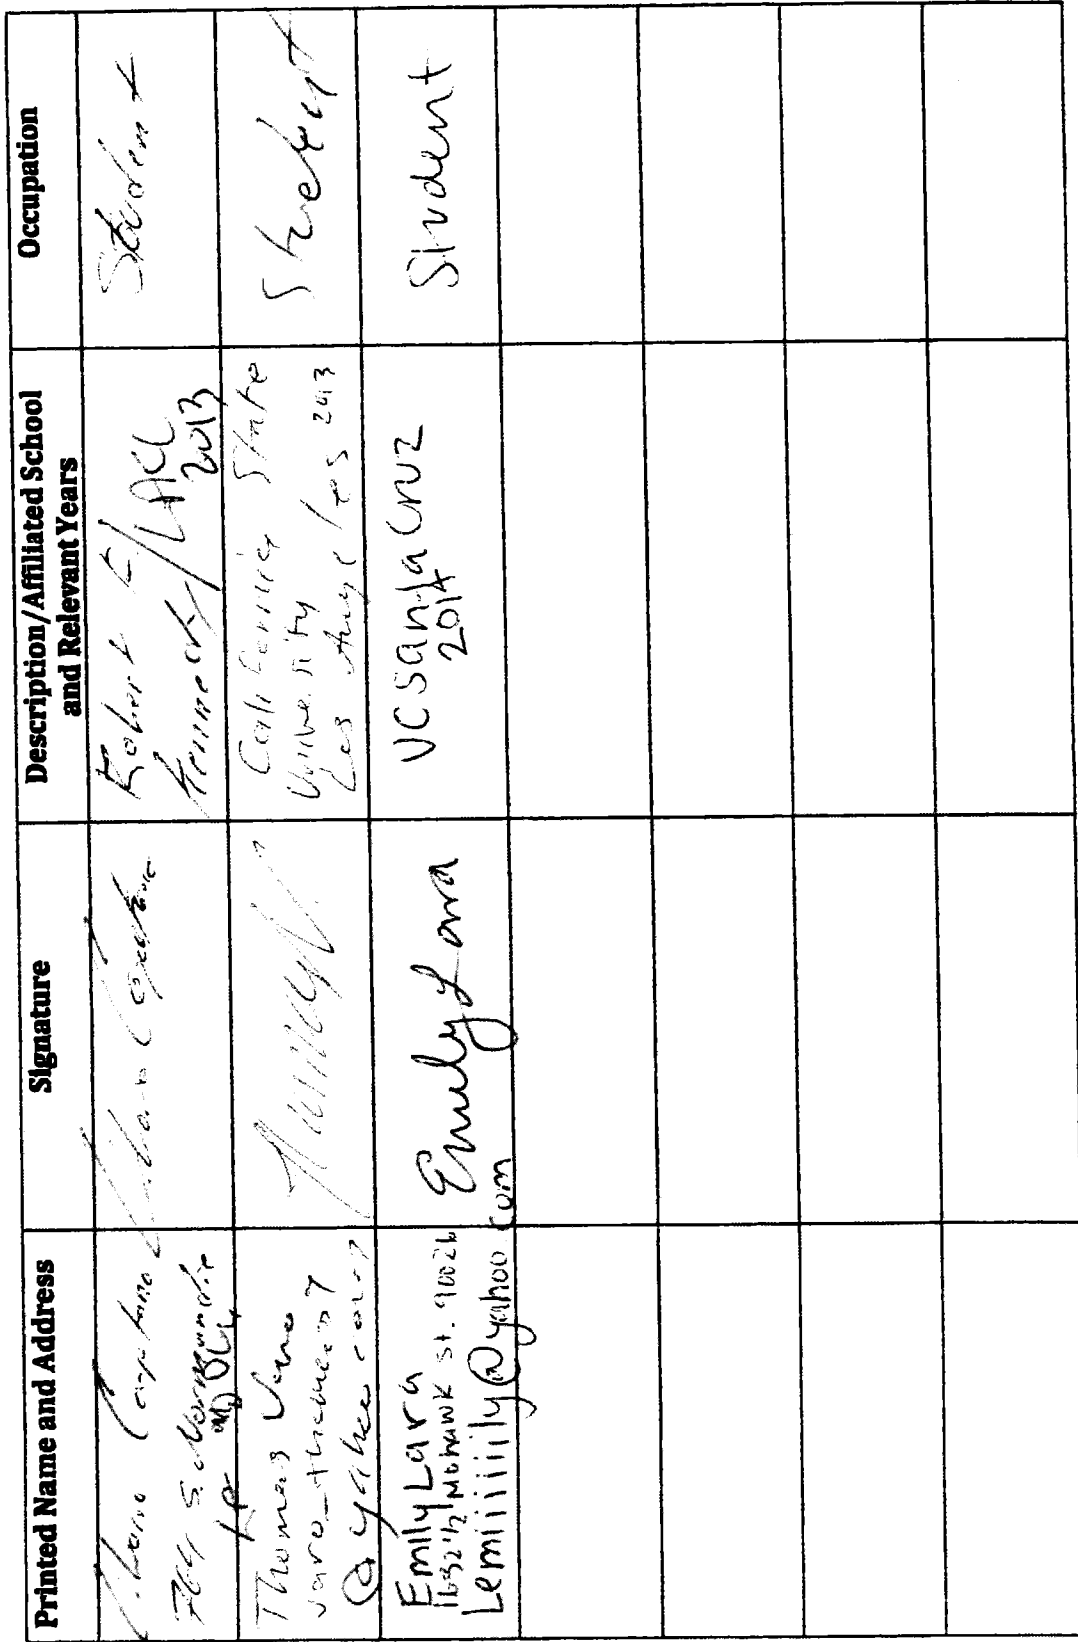 Printed Name and Address
Signature
Description/Affiliated School
and Relevant Years
Occupation
764 S. Normandie
Robert F
Kennedy/LACC
2013
Student
Thomas
@yahoo.com
California State
University
Los Angeles 2013
Student
Emily Lara
1632 1/2 Mohawk St. 90026
Lemiiiiiily@yahoo.com
Emily Lara
UC Santa Cruz
2014
Student